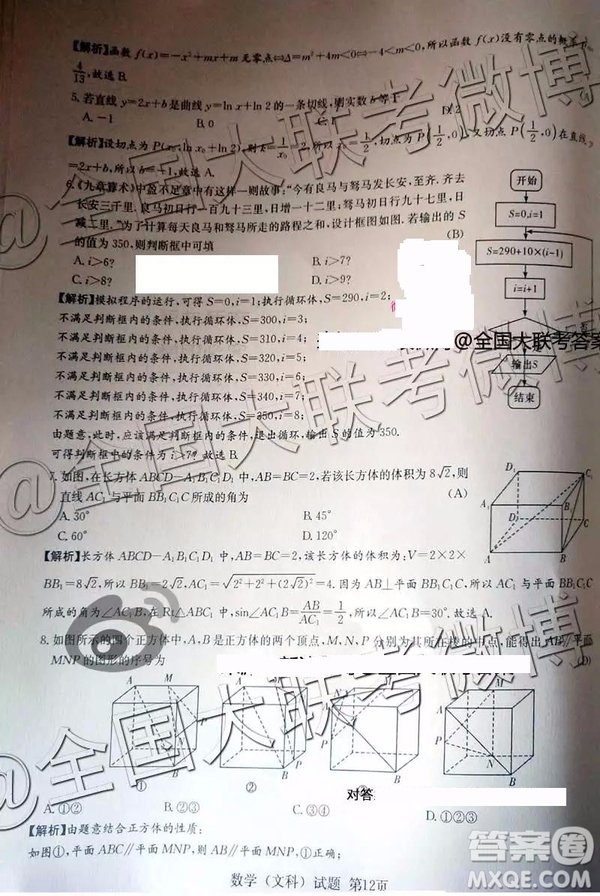 【解析】函数 f(x)=-x²+mx+m 无零点⇔Δ=m²+4m<0⇔-4<m<0,所以函数 f(x)没有零点的概率为
4/13,故选 B.
5.若直线 y=2x+b 是曲线 y=ln x+ln 2 的一条切线,则实数 b 等于
A.-1 B.0
【解析】设切点为 P(x₀,ln x₀+ln 2),则 k=1/x₀=2,所以 x₀=1/2,切点 P(1/2,0),又切点 P(1/2,0)在直线
=2x+b,所以 b=-1,故选 A.
6.《九章算术》中盈不足章中有这样一则故事:“今有良马与驽马发长安,至齐.齐去
长安三千里.良马初日行一百九十三里,日增一十二里;驽马初日行九十七里,日
减二里.”为了计算每天良马和驽马所走的路程之和,设计框图如图.若输出的 S
的值为 350,则判断框中可填 (B)
A. i>6? B. i>7?
C. i>8? D. i>9?
开始
S=0,i=1
S=290+10×(i-1)
i=i+1
输出S
结束
【解析】模拟程序的运行,可得 S=0,i=1;执行循环体,S=290,i=2;
不满足判断框内的条件,执行循环体,S=300,i=3;
不满足判断框内的条件,执行循环体,S=310,i=4;
不满足判断框内的条件,执行循环体,S=320,i=5;
不满足判断框内的条件,执行循环体,S=330,i=6;
不满足判断框内的条件,执行循环体,S=340,i=7;
不满足判断框内的条件,执行循环体,S=350,i=8;
由题意,此时,应该满足条件,退出循环,输出 S 的值为 350.
可得判断框中的条件为 i>7? 故选 B.
@全国大联考答案
7.如图,在长方体 ABCD—A₁B₁C₁D₁ 中,AB=BC=2,若该长方体的体积为 8√2,则
直线 AC₁ 与平面 BB₁C₁C 所成的角为 (A)
A. 30° B. 45°
C. 60° D. 120°
【解析】长方体 ABCD—A₁B₁C₁D₁ 中,AB=BC=2,该长方体的体积为:V=2×2×
BB₁=8√2,所以 BB₁=2√2,AC₁=√(2²+2²+(2√2)²)=4.因为 AB⊥平面 BB₁C₁C,所以 AC₁ 与平面 BB₁C₁C
所成的角为∠AC₁B,在 Rt△ABC₁ 中,sin∠AC₁B=AB/AC₁=1/2,所以∠AC₁B=30°.故选 A.
8.如图所示的四个正方体中,A,B 是正方体的两个顶点,M、N、P 分别为其所在棱的中点,能得出 AB∥平面
MNP 的图形的序号为 (D)
① ②
对答
A.①② B.②③ C.③④ D.①②③
【解析】由题意结合正方体的性质:
如图①,平面 ABC∥平面 MNP,则 AB∥平面 MNP,①正确;
数学(文科)试题 第12页
@全国大联考微博
@全国大联考微博
@全国大联考微博
答案圈
MXQE.COM